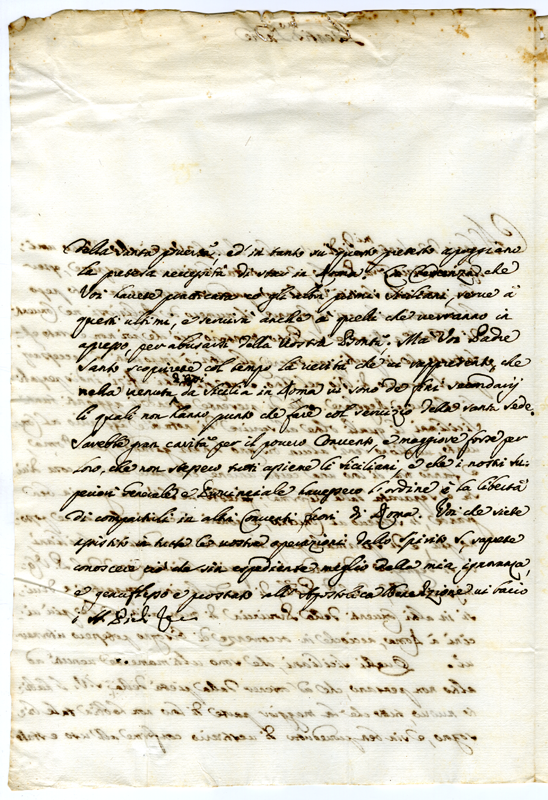 della santa povertà, ed in tanto su questo pretesto apoggiano
la pretesa necessità di stare in Roma. La clemenza che
Voi havete praticata con gli altri primi Siciliani, serve a
questi ultimi, e servirà anche a quelli che verranno in
apresso per abusarsi della Vostra Bontà. Ma Voi Padre
Santo scoprirete col tempo la verità che vi rappresento, che
nella venuta da Sicilia in Roma vi sono de fini secondarij
li quali non hanno punto che fare col servizio della santa Sede.
Sarebbe gran carità per il povero Convento, e maggiore forse per
loro, che non stassero tutti assieme li Siciliani, e che i nostri Su-
periori Generale e Provinciale havessero l'ordine e la libertà
di compartirli in altri Conventi fuori di Roma. Voi che siete
assistito in tutte le vostre operazioni dallo Spirito S. sapete
conoscere ciò che sia espediente meglio della mia ignoranza,
e genuflesso e prostrato alla Apostolica Benedizione vi bacio
i SS. Piedi